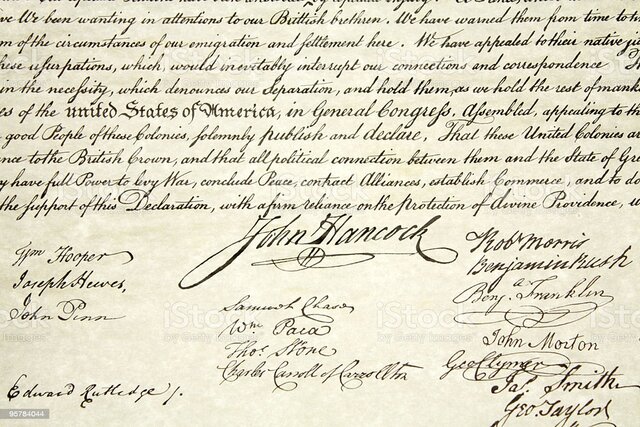 We been wanting in attentions to our Brittish brethren. We have warned them from time to
of the circumstances of our emigration and settlement here. We have appealed to their native
these usurpations, which, would inevitably interrupt our connections and correspondence
in the necessity, which denounces our Separation, and hold them, as we hold the rest of
of the united States of America, in General Congress, Assembled, appealing to the
good People of these Colonies, solemnly publish and declare, That these United Colonies
to the British Crown, and that all political connection between them and the State of
have full Power to levy War, conclude Peace, contract Alliances, establish Commerce, and to do
the support of this Declaration, with a firm reliance on the Protection of divine Providence,
John Hancock
Wm Hooper
Joseph Hewes,
John Penn
Edward Rutledge /.
Samuel Chase
Wm Paca
Thos. Stone
Charles Carroll of Carrollton
Robt Morris
Benjamin Rush
Benj. Franklin
John Morton
Geo Clymer
Jas. Smith
Geo. Taylor
iStock
by Getty Images
95784044